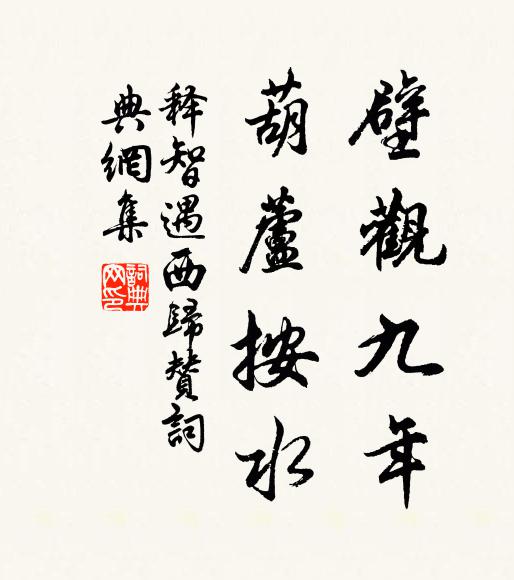 壁觀九年
葫蘆按水
釋智遇西歸贊詞
典網集
詞典网印